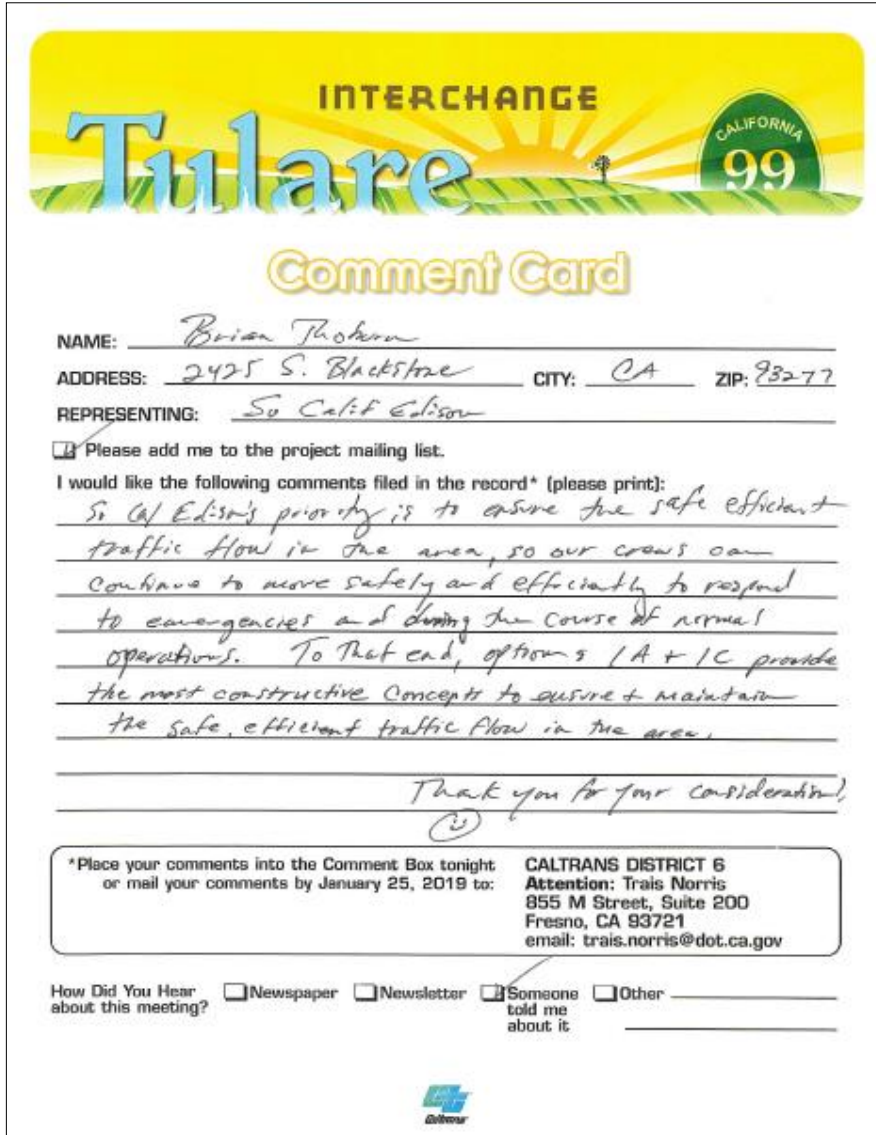 INTERCHANGE
Tulare
CALIFORNIA
99
Comment Card
NAME: Brian Thoburn
ADDRESS: 2425 S. Blackstone CITY: CA ZIP: 93277
REPRESENTING: So Calif Edison
Please add me to the project mailing list.
I would like the following comments filed in the record* (please print):
So Cal Edison's priority is to ensure the safe efficient
traffic flow in the area, so our crews can
continue to move safely and efficiently to respond
to emergencies and during the course of normal
operations. To that end, options 1A + 1C provide
the most constructive concepts to ensure + maintain
the safe, efficient traffic flow in the area.
Thank you for your consideration!
*Place your comments into the Comment Box tonight
or mail your comments by January 25, 2019 to:
CALTRANS DISTRICT 6
Attention: Trais Norris
855 M Street, Suite 200
Fresno, CA 93721
email: trais.norris@dot.ca.gov
How Did You Hear about this meeting? Newspaper Newsletter Someone told me about it Other
Caltrans